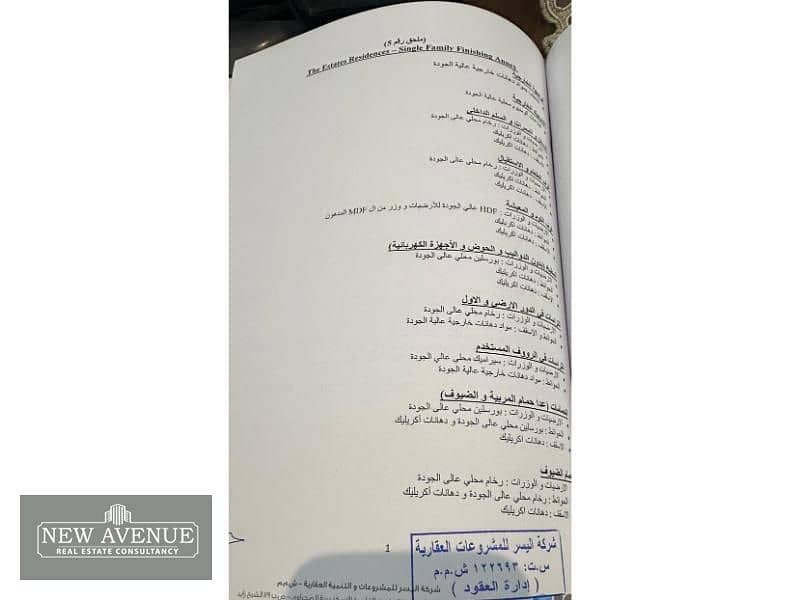 (ملحق رقم 5)
The Estates Residences – Single Family Finishing Annex
مواد دهانات خارجية عالية الجودة
محلية عالية الجودة
و الممرات و السلم الداخلي
الارضيات و الوزرات : رخام محلي عالى الجودة
الحوائط : دهانات اكريليك
الاسقف : دهانات اكريليك
و الاستقبال
الارضيات و الوزرات : رخام محلي عالى الجودة
الحوائط : دهانات اكريليك
الاسقف : دهانات اكريليك
غرف النوم و المعيشة
الارضيات و الوزرات : HDF عالي الجودة للأرضيات و وزر من ال MDF المدهون
الحوائط : دهانات اكريليك
الاسقف : دهانات اكريليك
الدواليب و الحوض و الأجهزة الكهربائية)
الارضيات و الوزرات : بورسلين محلي عالى الجودة
الحوائط : دهانات اكريليك
الاسقف : دهانات اكريليك
في الدور الارضي و الاول
الارضيات و الوزرات : رخام محلي عالى الجودة
الحوائط و الاسقف : مواد دهانات خارجية عالية الجودة
في الرووف المستخدم
الارضيات و الوزرات : سيراميك محلي عالي الجودة
الحوائط : مواد دهانات خارجية عالية الجودة
الحمامات (عدا حمام المربية و الضيوف)
الارضيات و الوزرات : بورسلين محلي عالى الجودة
الحوائط : بورسلين محلي عالى الجودة و دهانات أكريليك
الاسقف : دهانات اكريليك
الضيوف
الارضيات و الوزرات : رخام محلي عالى الجودة
الحوائط : رخام محلي عالى الجودة و دهانات أكريليك
الاسقف : دهانات اكريليك
1
شركة اليسر للمشروعات العقارية
س.ت: ١٢٢٦٩٣ ش.م.م
( إدارة العقود )
شركة اليسر للمشروعات و التنمية العقارية - ش.م.م
NEW AVENUE
REAL ESTATE CONSULTANCY